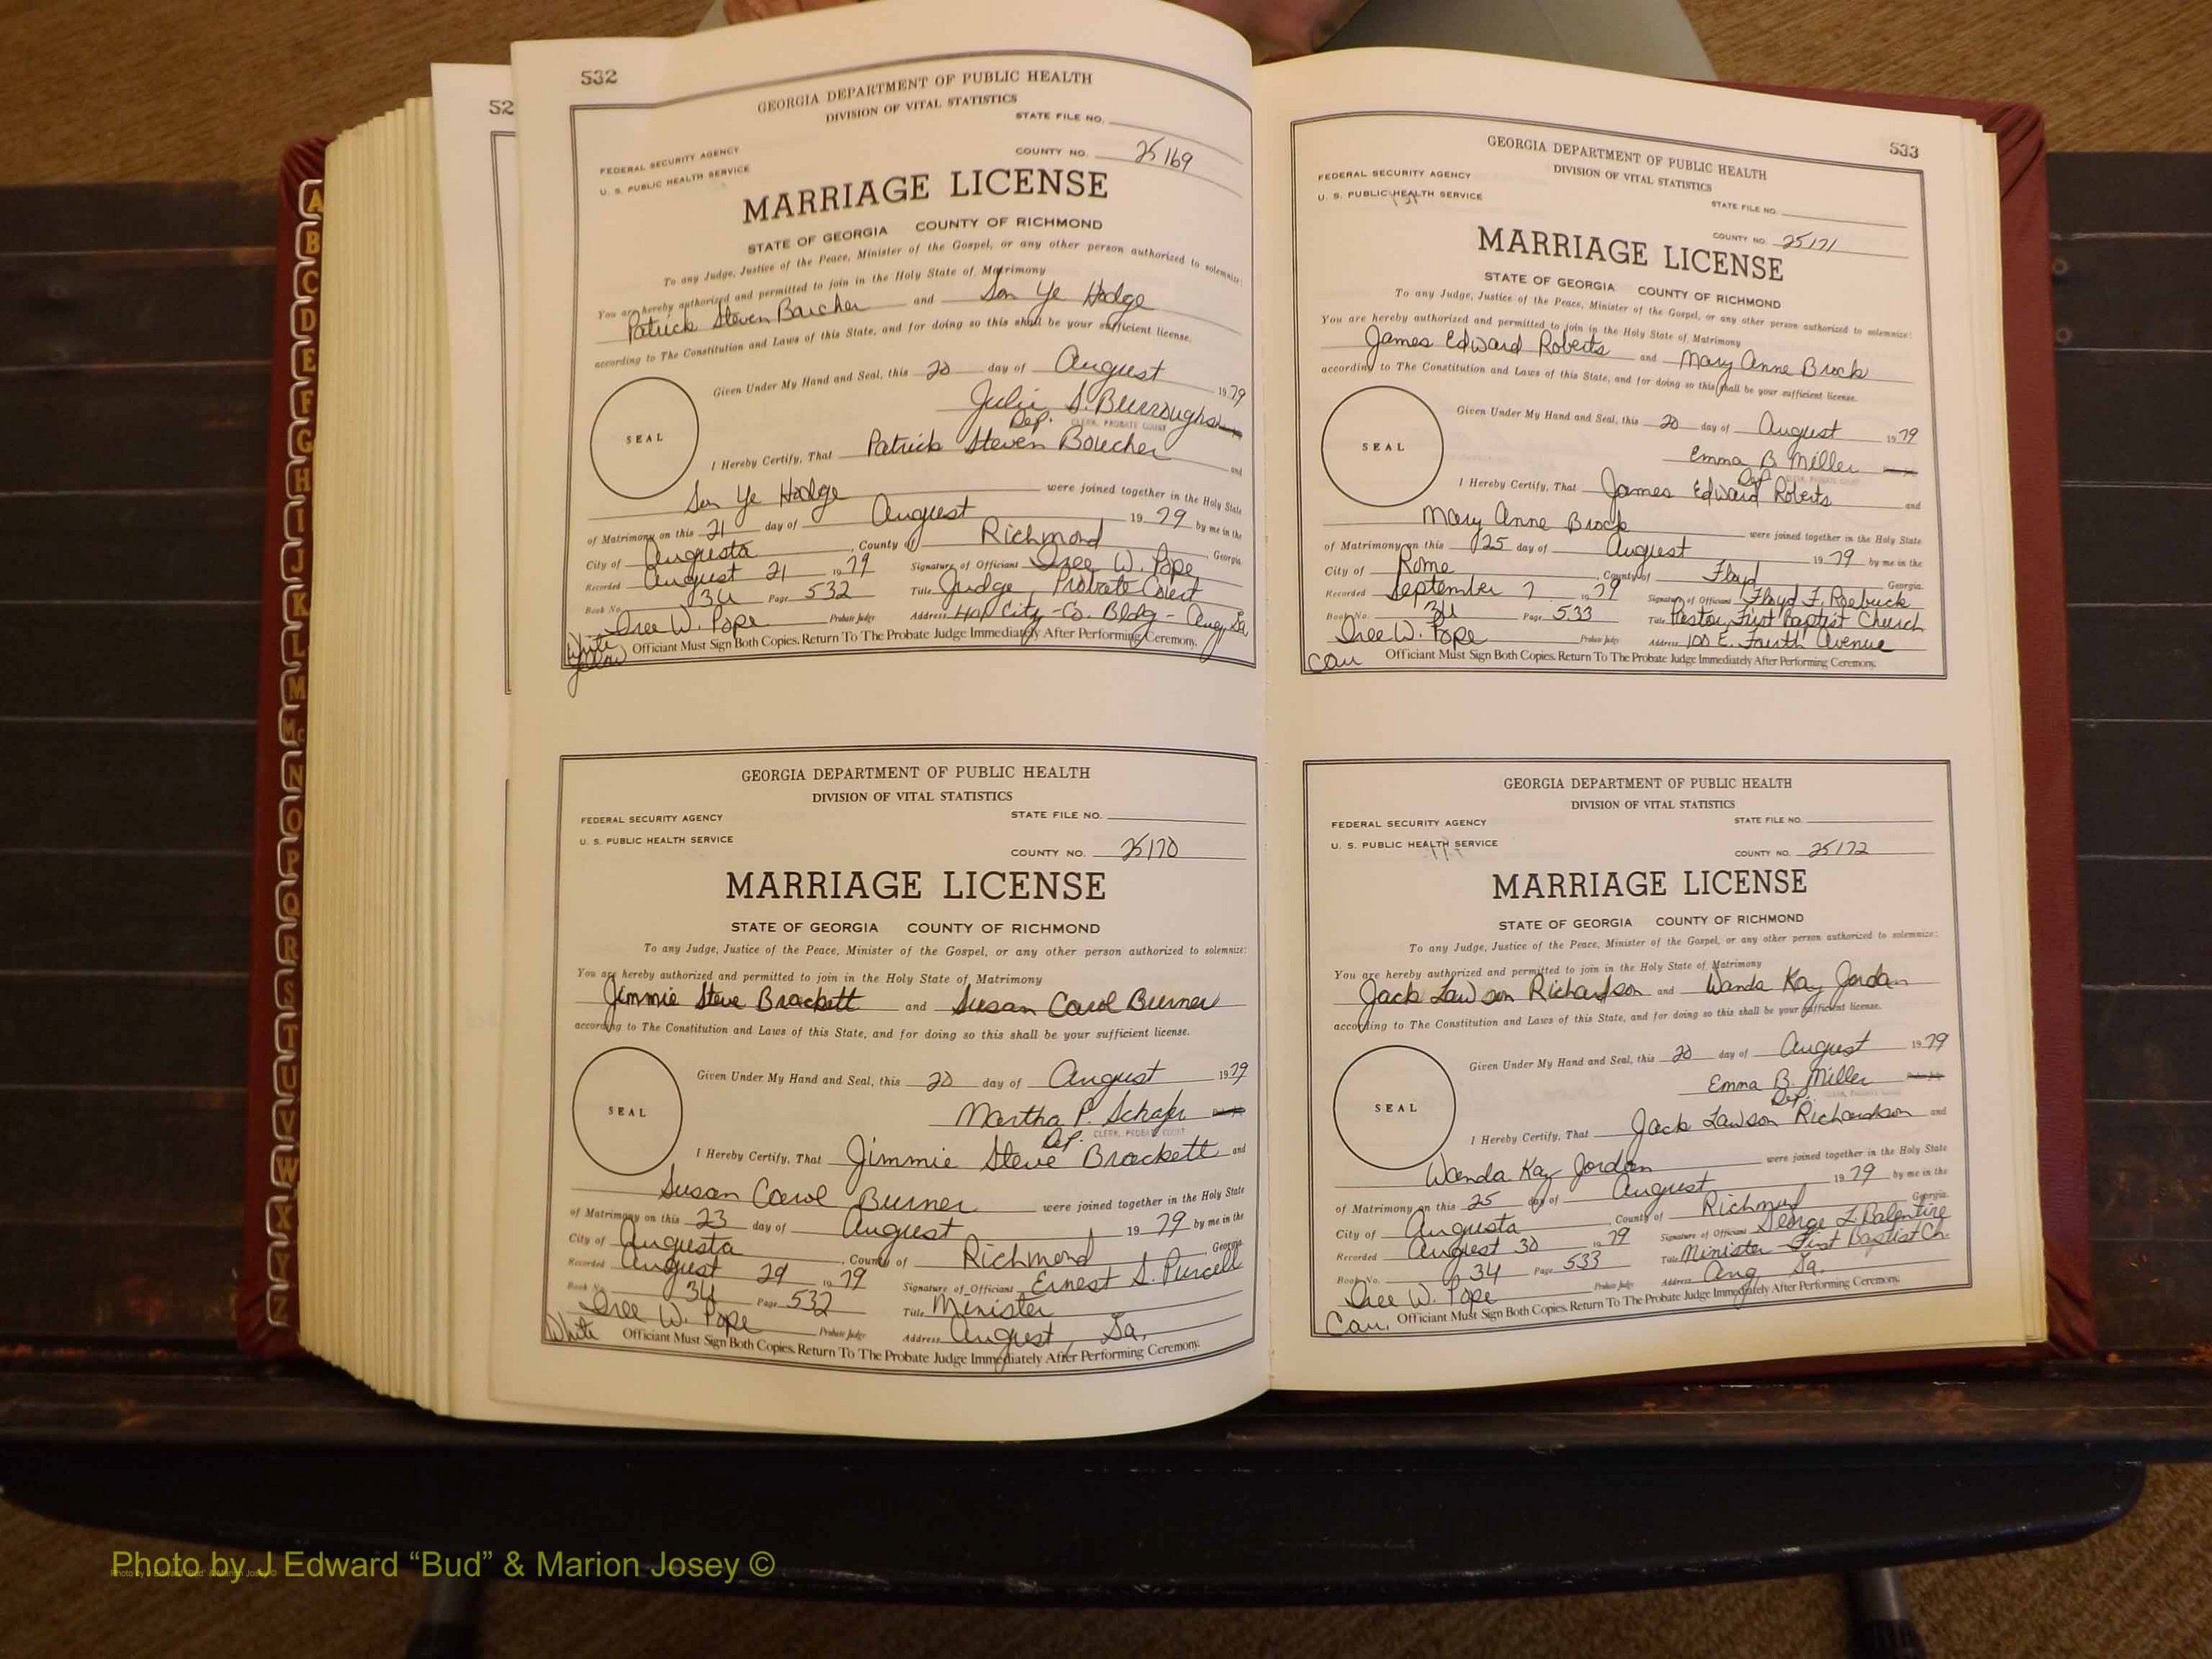 A
B
C
D
E
F
G
H
I
J
K
L
M
Mc
N
O
P
Q
R
S
T
U
V
W
X
Y
Z
52
532
GEORGIA DEPARTMENT OF PUBLIC HEALTH
DIVISION OF VITAL STATISTICS
STATE FILE NO.
FEDERAL SECURITY AGENCY
COUNTY NO. 25169
U. S. PUBLIC HEALTH SERVICE
MARRIAGE LICENSE
STATE OF GEORGIA COUNTY OF RICHMOND
To any Judge, Justice of the Peace, Minister of the Gospel, or any other person authorized to solemnize:
You are hereby authorized and permitted to join in the Holy State of Matrimony
Patrick Steven Boucher and Son Ye Hodge
according to The Constitution and Laws of this State, and for doing so this shall be your sufficient license.
Given Under My Hand and Seal, this 20 day of August 1979
Julie S. Burroughs
Dep. CLERK, PROBATE COURT
SEAL
I Hereby Certify, That Patrick Steven Boucher and
Son Ye Hodge were joined together in the Holy State
of Matrimony on this 21 day of August 1979 by me in the
City of Augusta, County of Richmond, Georgia.
Recorded August 21 1979 Signature of Officiant Isee W. Pope
Book No. 34 Page 532 Title Judge, Probate Court
Isee W. Pope Probate Judge Address 401 City-Co. Bldg - Aug, Ga
White
Yellow
Officiant Must Sign Both Copies. Return To The Probate Judge Immediately After Performing Ceremony.
GEORGIA DEPARTMENT OF PUBLIC HEALTH
DIVISION OF VITAL STATISTICS
FEDERAL SECURITY AGENCY STATE FILE NO.
U. S. PUBLIC HEALTH SERVICE
COUNTY NO. 25170
MARRIAGE LICENSE
STATE OF GEORGIA COUNTY OF RICHMOND
To any Judge, Justice of the Peace, Minister of the Gospel, or any other person authorized to solemnize:
You are hereby authorized and permitted to join in the Holy State of Matrimony
Jimmie Steve Brackett and Susan Carol Burner
according to The Constitution and Laws of this State, and for doing so this shall be your sufficient license.
Given Under My Hand and Seal, this 20 day of August 1979
Martha P. Schafer
Dep. CLERK, PROBATE COURT
SEAL
I Hereby Certify, That Jimmie Steve Brackett and
Susan Carol Burner were joined together in the Holy State
of Matrimony on this 23 day of August 1979 by me in the
City of Augusta, County of Richmond, Georgia.
Recorded August 29 1979 Signature of Officiant Ernest S. Purcell
Book No. 34 Page 532 Title Minister
Isee W. Pope Probate Judge Address August, Ga.
White Officiant Must Sign Both Copies. Return To The Probate Judge Immediately After Performing Ceremony.
533
GEORGIA DEPARTMENT OF PUBLIC HEALTH
DIVISION OF VITAL STATISTICS
FEDERAL SECURITY AGENCY
U. S. PUBLIC HEALTH SERVICE
STATE FILE NO.
COUNTY NO. 25171
MARRIAGE LICENSE
STATE OF GEORGIA COUNTY OF RICHMOND
To any Judge, Justice of the Peace, Minister of the Gospel, or any other person authorized to solemnize:
You are hereby authorized and permitted to join in the Holy State of Matrimony
James Edward Roberts and Mary Anne Brock
according to The Constitution and Laws of this State, and for doing so this shall be your sufficient license.
Given Under My Hand and Seal, this 20 day of August 1979
Emma B. Miller
Dep. CLERK, PROBATE COURT
SEAL
I Hereby Certify, That James Edward Roberts and
Mary Anne Brock were joined together in the Holy State
of Matrimony on this 25 day of August 1979 by me in the
City of Rome, County of Floyd, Georgia.
Recorded September 7 1979 Signature of Officiant Floyd F. Roebuck
Book No. 34 Page 533 Title Pastor, First Baptist Church
Isee W. Pope Probate Judge Address 100 E. Fourth Avenue
Cau Officiant Must Sign Both Copies. Return To The Probate Judge Immediately After Performing Ceremony.
GEORGIA DEPARTMENT OF PUBLIC HEALTH
DIVISION OF VITAL STATISTICS
FEDERAL SECURITY AGENCY STATE FILE NO.
U. S. PUBLIC HEALTH SERVICE
COUNTY NO. 25172
MARRIAGE LICENSE
STATE OF GEORGIA COUNTY OF RICHMOND
To any Judge, Justice of the Peace, Minister of the Gospel, or any other person authorized to solemnize:
You are hereby authorized and permitted to join in the Holy State of Matrimony
Jack Lawson Richardson and Wanda Kay Jordan
according to The Constitution and Laws of this State, and for doing so this shall be your sufficient license.
Given Under My Hand and Seal, this 20 day of August 1979
Emma B. Miller
Dep.
SEAL
I Hereby Certify, That Jack Lawson Richardson and
Wanda Kay Jordan were joined together in the Holy State
of Matrimony on this 25 day of August 1979 by me in the
City of Augusta, County of Richmond, Georgia.
Recorded August 30 1979 Signature of Officiant George L. Balentine
Book No. 34 Page 533 Title Minister - First Baptist Ch.
Isee W. Pope Probate Judge Address Aug. Ga.
Cau. Officiant Must Sign Both Copies. Return To The Probate Judge Immediately After Performing Ceremony.
Photo by J Edward “Bud” & Marion Josey ©
Photo by J Edward “Bud” & Marion Josey ©